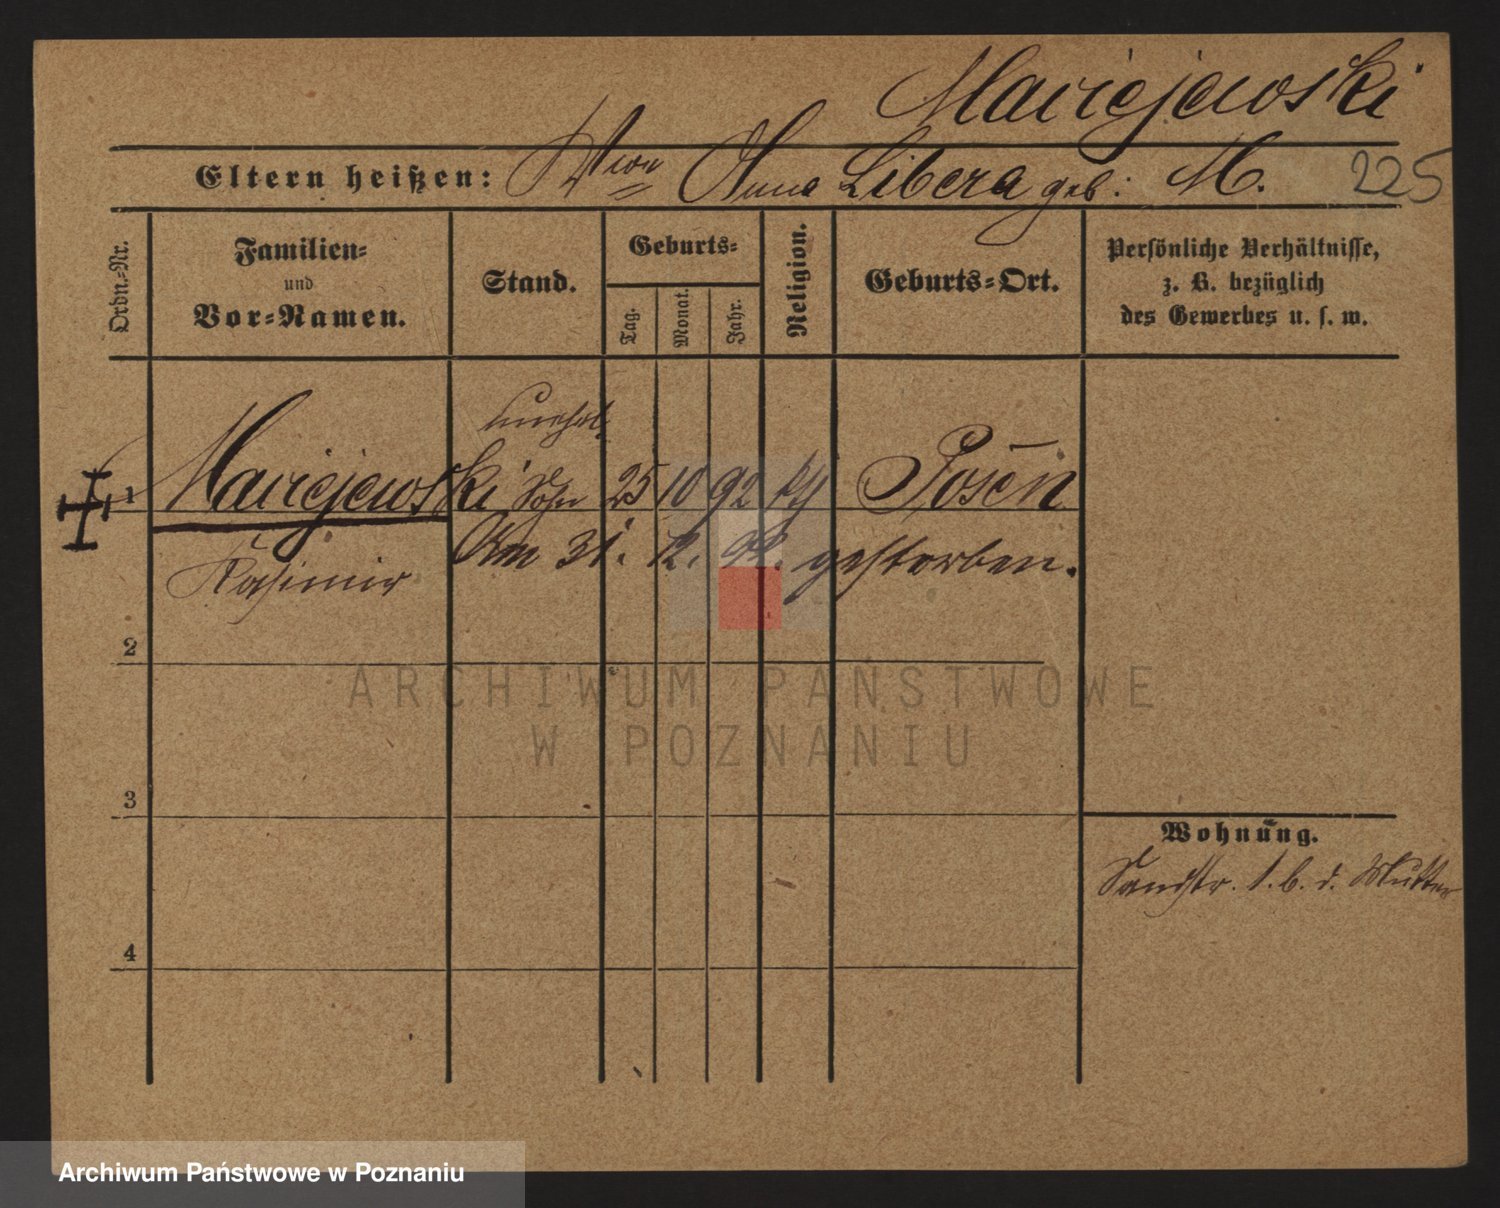 Maciejewski
Eltern heißen: Wwe Anna Libera geb: M. 225
Ordn.-Nr.
Familien-
und
Vor-Namen.
Stand.
Geburts-
Tag.
Monat.
Jahr.
Religion.
Geburts-Ort.
Persönliche Verhältnisse,
z. B. bezüglich
des Gewerbes u. s. w.
unehel.
1 Maciejewski Sohn 25 10 92 Posen
Am 31. 12. 92. gestorben.
Kasimir
2
ARCHIWUM PAŃSTWOWE
W POZNANIU
3
Wohnung.
Sandstr. 1. b. d. Mutter
4
Archiwum Państwowe w Poznaniu